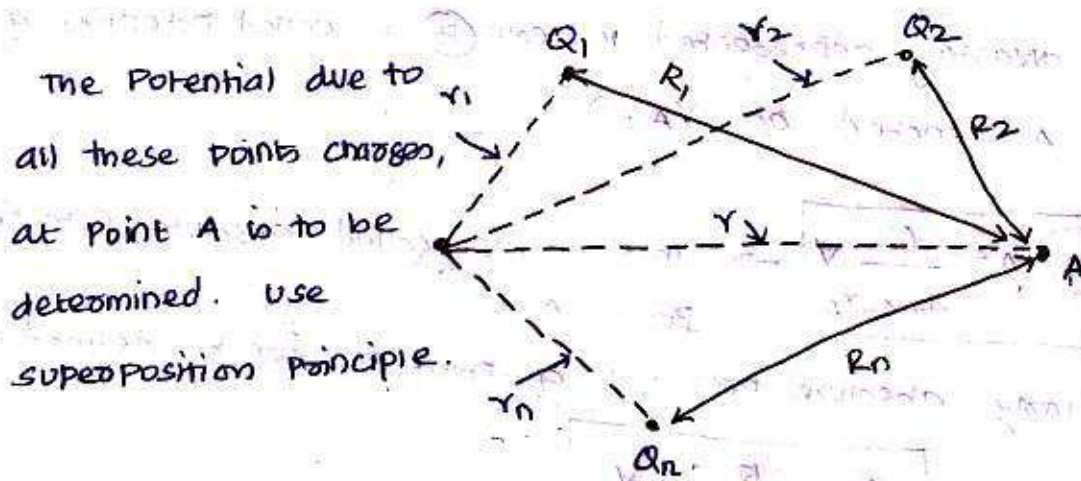 The Potential due to
all these points charges,
at Point A is to be
determined. Use
superposition principle.
Q1
r2
Q2
r1
R1
R2
r
A
Rn
rn
Qn.